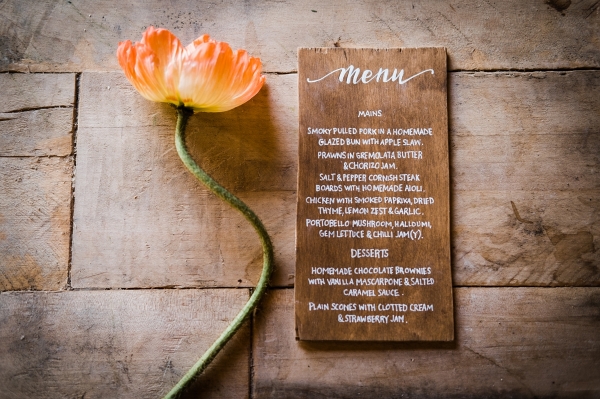 menu
MAINS
SMOKY PULLED PORK IN A HOMEMADE
GLAZED BUN WITH APPLE SLAW.
PRAWNS IN GREMOLATA BUTTER
& CHORIZO JAM.
SALT & PEPPER CORNISH STEAK
BOARDS WITH HOMEMADE AIOLI.
CHICKEN WITH SMOKED PAPRIKA, DRIED
THYME, LEMON ZEST & GARLIC.
PORTOBELLO MUSHROOM, HALLOUMI,
GEM LETTUCE & CHILLI JAM(V).
DESSERTS
HOMEMADE CHOCOLATE BROWNIES
WITH VANILLA MASCARPONE & SALTED
CARAMEL SAUCE.
PLAIN SCONES WITH CLOTTED CREAM
& STRAWBERRY JAM.